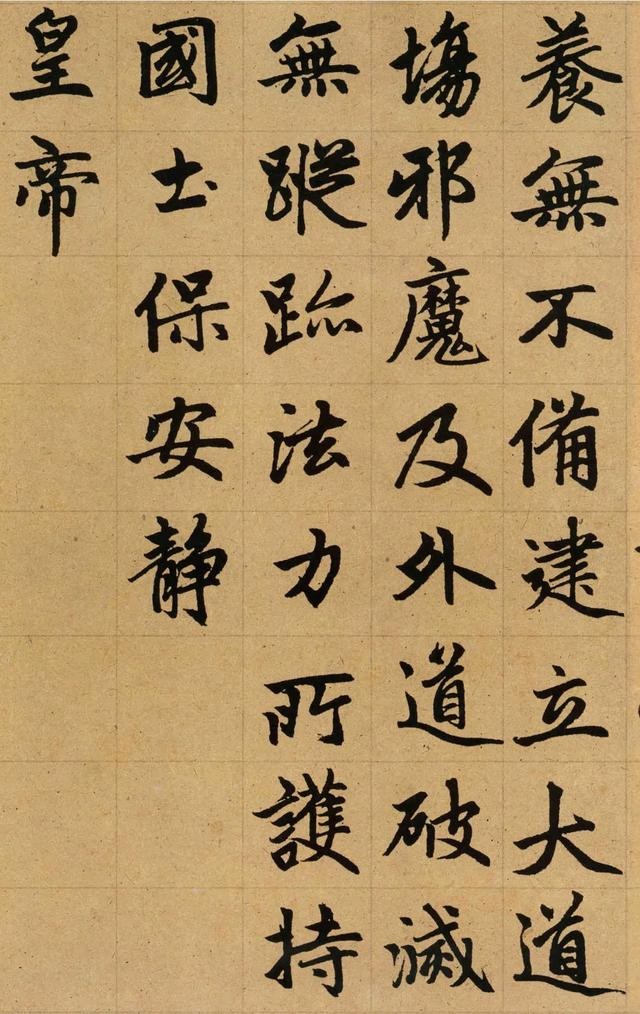 養無不備建立大道
場邪魔及外道破滅
無蹤跡法力所護持
國土保安静
皇帝